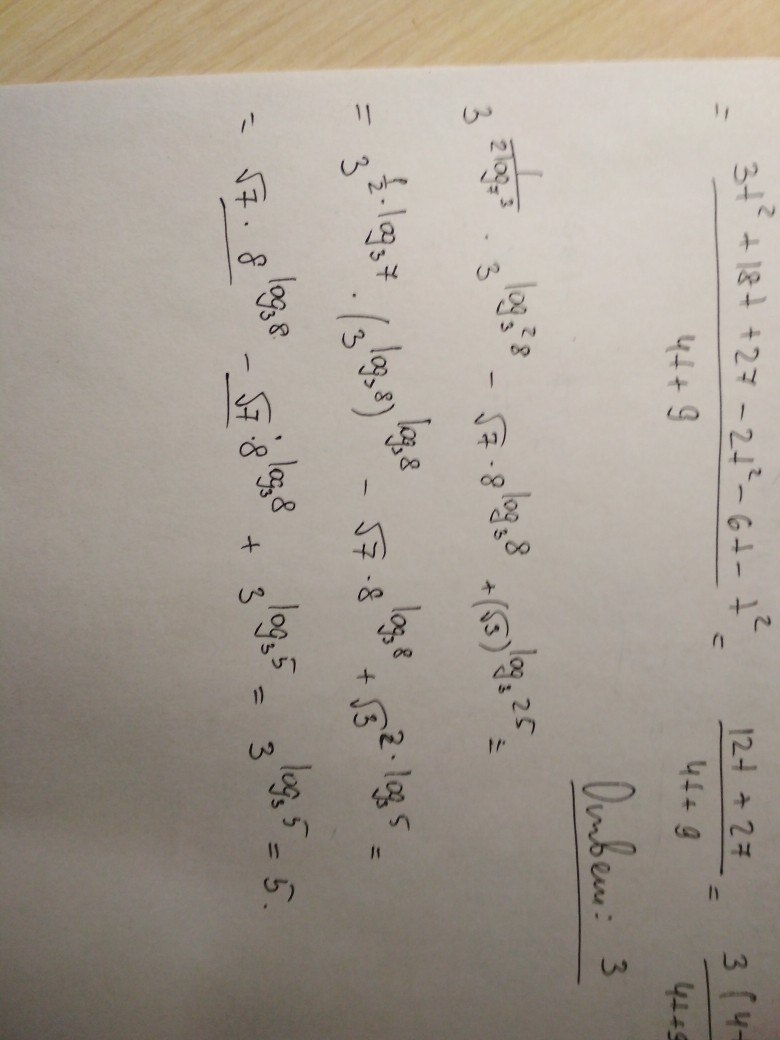 = (3t² + 18t + 27 - 2t² - 6t - t²) / (4t + 9) = (12t + 27) / (4t + 9) = 3(4
4t+9
Ответ: 3
3^(1/(2log₇3)) · 3^(log₃²8) - √7 · 8^(log₃8) + (√3)^(log₃25) =
= 3^(1/2 · log₃7) · (3^(log₃8))^(log₃8) - √7 · 8^(log₃8) + √3^(2 · log₃5) =
= √7 · 8^(log₃8) - √7 · 8^(log₃8) + 3^(log₃5) = 3^(log₃5) = 5.